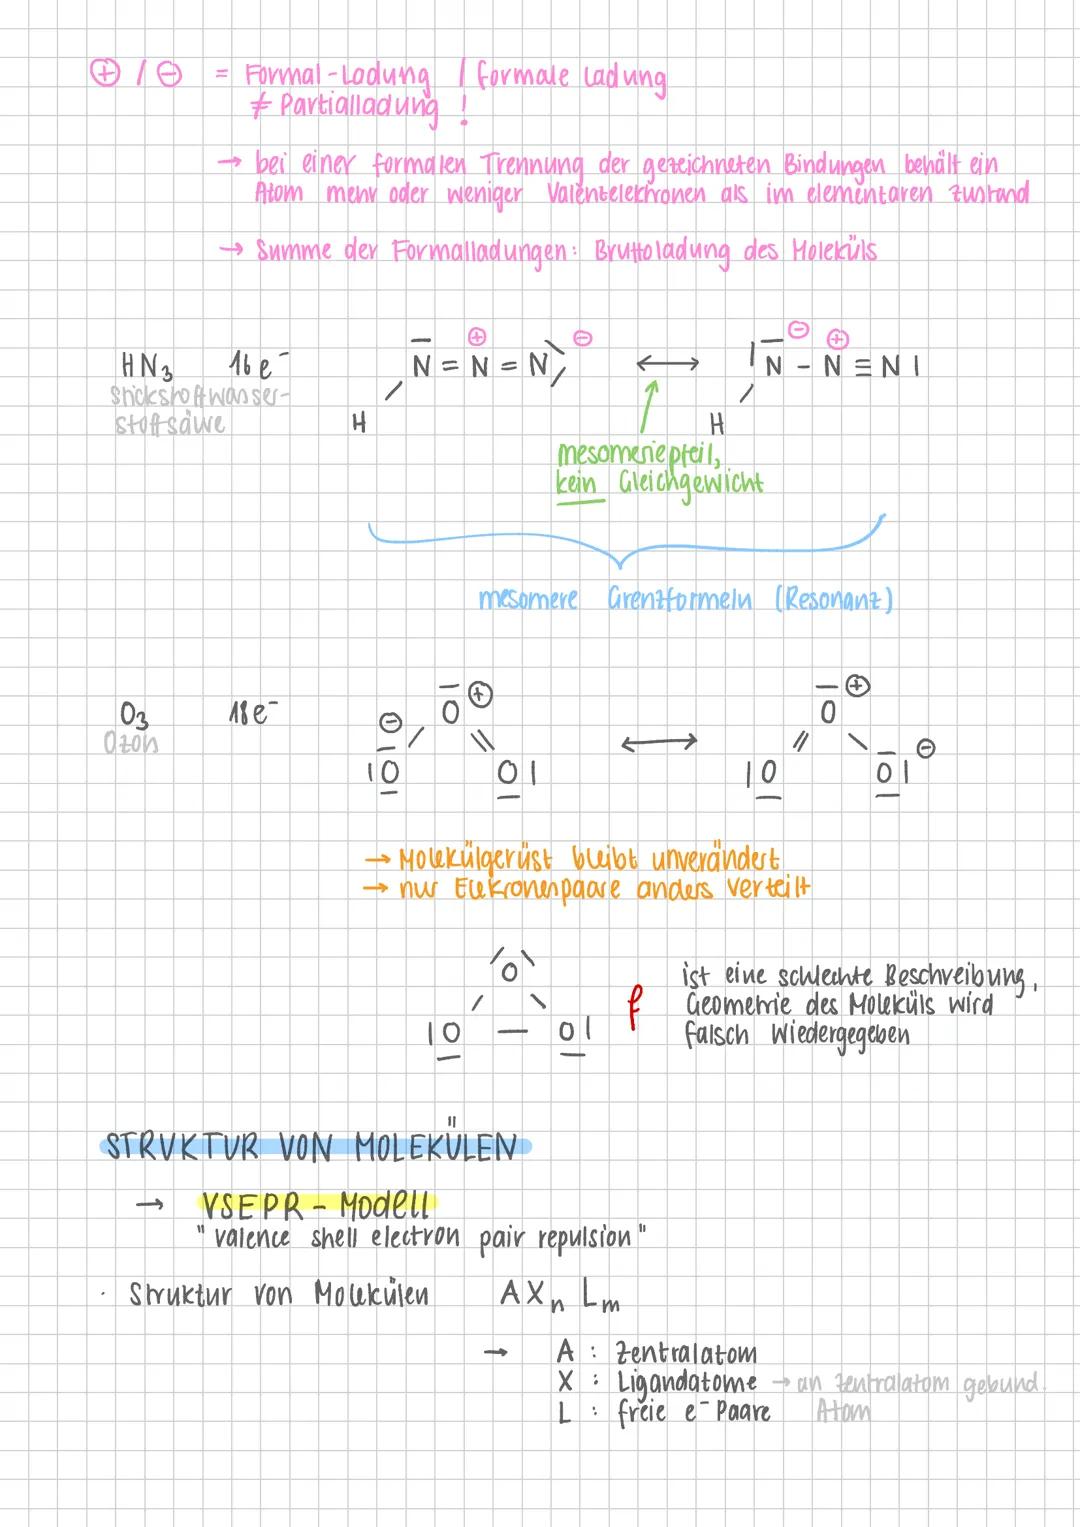 ⊕ / ⊖ = Formal-Ladung / formale Ladung
≠ Partialladung !
→ bei einer formalen Trennung der gezeichneten Bindungen behält ein
Atom mehr oder weniger Valenzelektronen als im elementaren Zustand
→ Summe der Formalladungen: Bruttoladung des Moleküls
HN₃ 16 e⁻ N = N = N ⊕ ⊖ ⟷ N - N ≡ N | ⊖ ⊕
Stickstoffwasser-
stoffsäure
H H
mesomeriepfeil,
kein Gleichgewicht
mesomere Grenzformeln (Resonanz)
O₃ 18 e⁻ ⊖ O ⊕ ⟷ O ⊕ ⊖
Ozon
|O O| |O O|
→ Molekülgerüst bleibt unverändert
→ nur Elekronenpaare anders verteilt
O
|O — O| f
ist eine schlechte Beschreibung,
Geometrie des Moleküls wird
falsch wiedergegeben
STRUKTUR VON MOLEKÜLEN
→ VSEPR - Modell
"valence shell electron pair repulsion"
· Struktur von Molekülen AXₙ Lₘ
→ A : Zentralatom
X : Ligandatome → an Zentralatom gebund.
Atom
L : freie e⁻ Paare